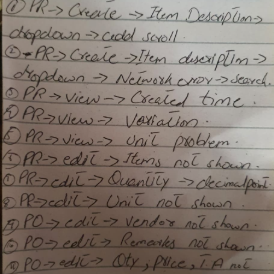 ① PR → Create → Item Description →
dropdown → add scroll.
② → PR → Create → Item discription →
dropdown → Network error → search.
PR → view → Created time.
PR → view → Variation.
PR → view → Unit problem.
PR → edit → Items not shown.
PR → edit → Quantity → decimal point.
PR → edit → Unit not shown.
PO → edit → vendor not shown.
PO → edit → Remarks not shown.
PO → edit → Qty, price, T.A not